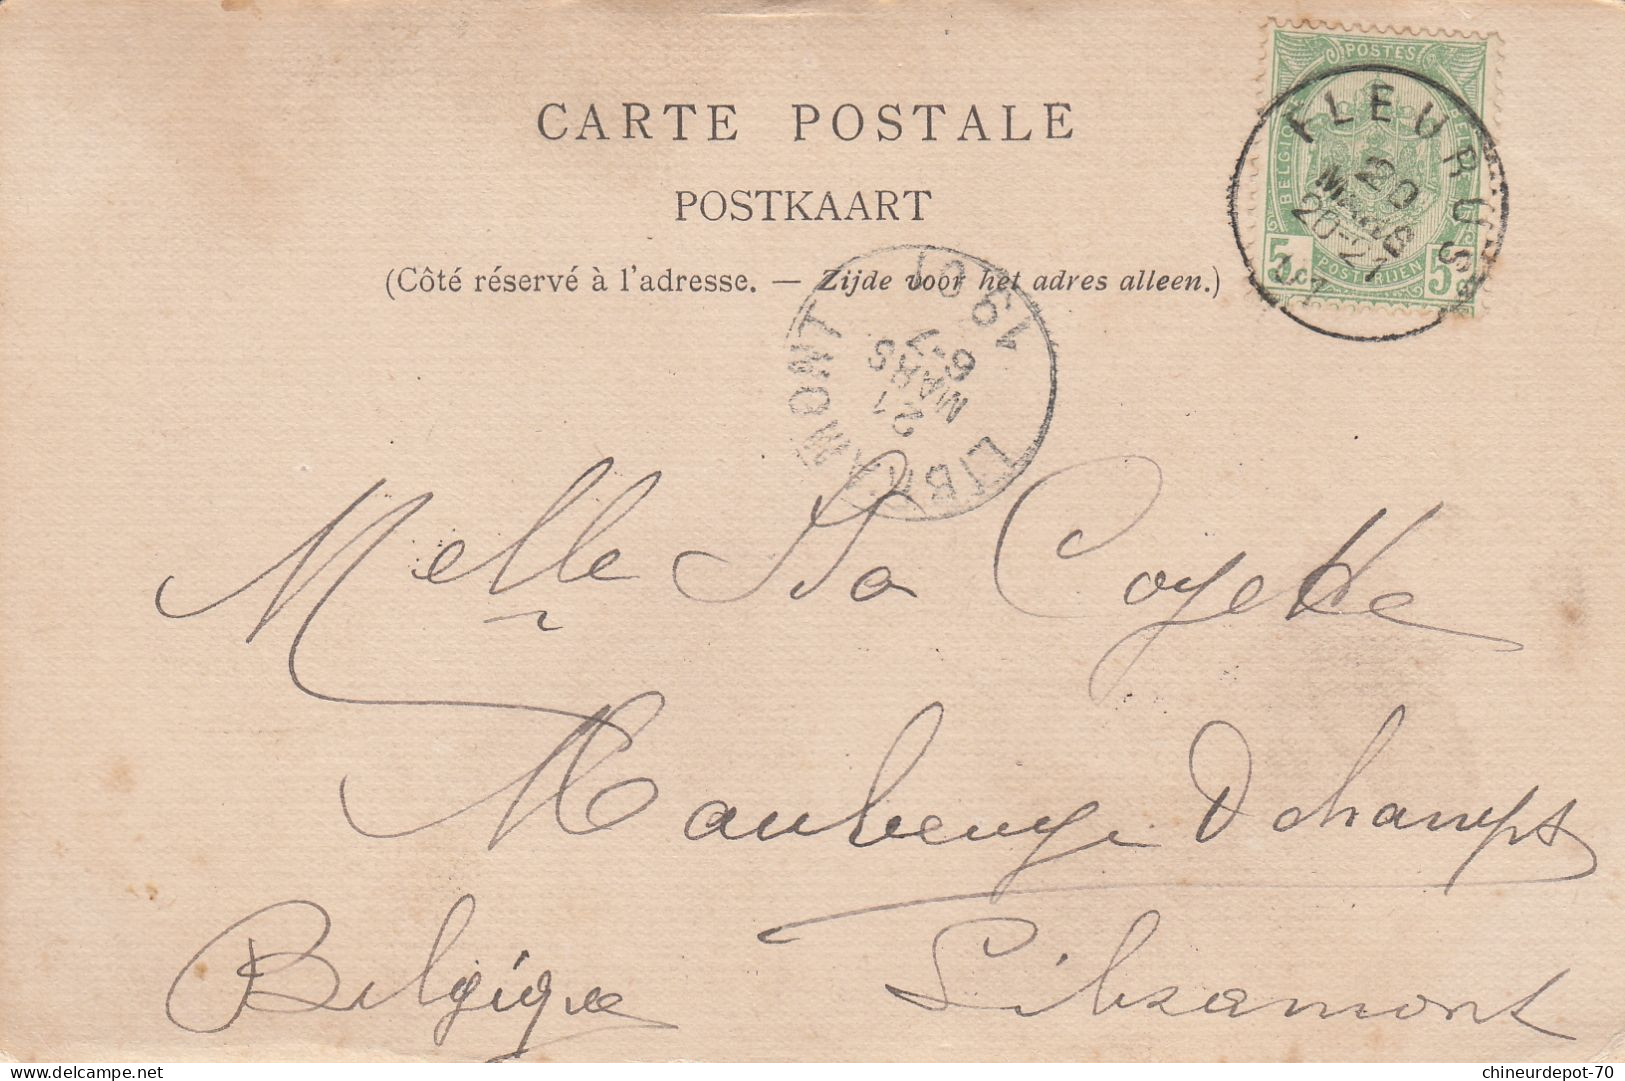 CARTE POSTALE
POSTKAART
(Côté réservé à l'adresse. — Zijde voor het adres alleen.)
POSTES
BELGIQUE
POSTERIJEN
5 5
FLEURUS
20
MARS
20-21
LIBRAMONT
21
MARS
6-7
1901
Melle Coyette
Maubeuge
Belgique Libramont
chineurdepot-70